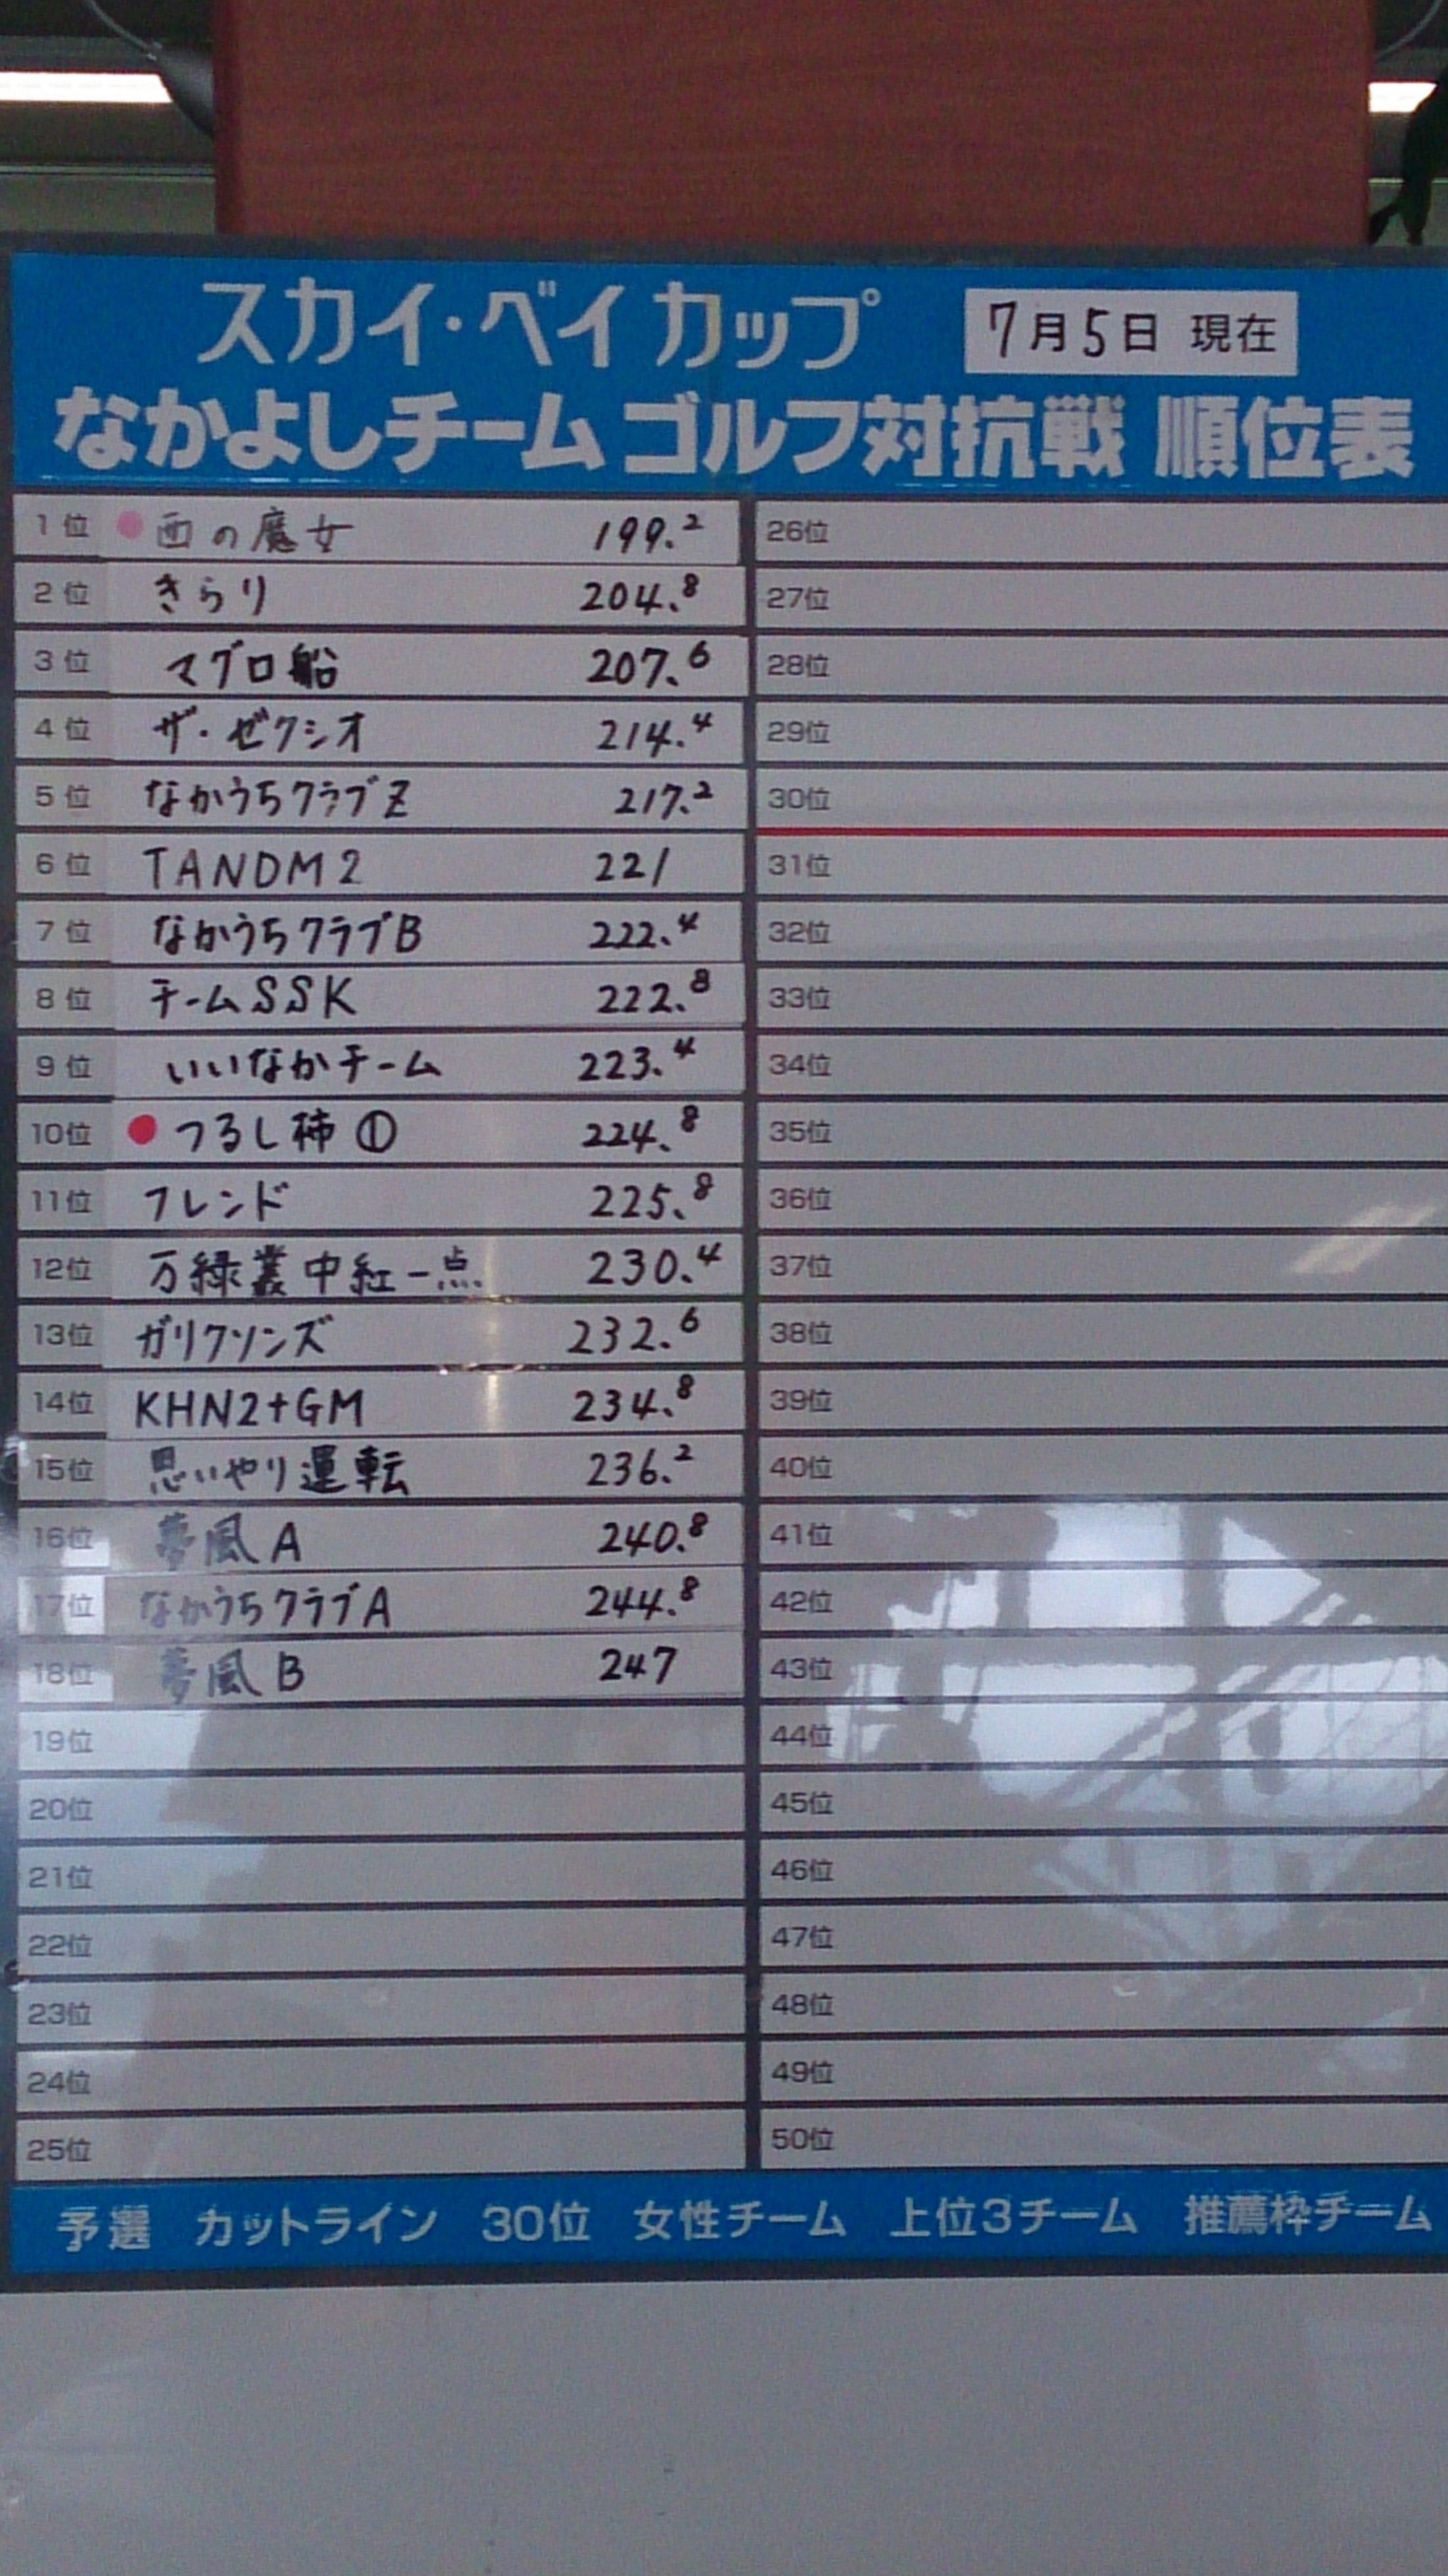 スカイ・ベイ カップ 7月5日 現在
なかよしチーム ゴルフ対抗戦 順位表
1位 西の魔女 199.2
2位 きらり 204.8
3位 マグロ船 207.6
4位 ザ・ゼクシオ 214.4
5位 なかうちクラブZ 217.2
6位 TANDM2 221
7位 なかうちクラブB 222.4
8位 チームSSK 222.8
9位 いいなかチーム 223.4
10位 つるし柿① 224.8
11位 フレンド 225.8
12位 万緑叢中紅一点 230.4
13位 ガリクソンズ 232.6
14位 KHN2+GM 234.8
15位 思いやり運転 236.2
16位 夢風A 240.8
17位 なかうちクラブA 244.8
18位 夢風B 247
19位
20位
21位
22位
23位
24位
25位
26位
27位
28位
29位
30位
31位
32位
33位
34位
35位
36位
37位
38位
39位
40位
41位
42位
43位
44位
45位
46位
47位
48位
49位
50位
予選 カットライン 30位 女性チーム 上位3チーム 推薦枠チーム